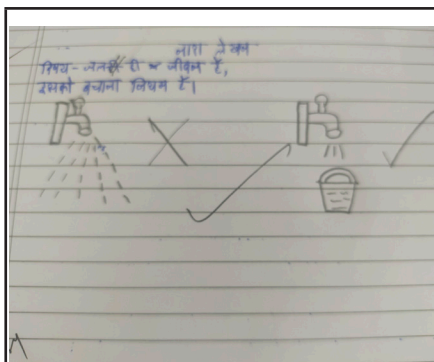 नारा लेखन
विषय - जल ही जीवन है,
इसको बचाना नियम है।